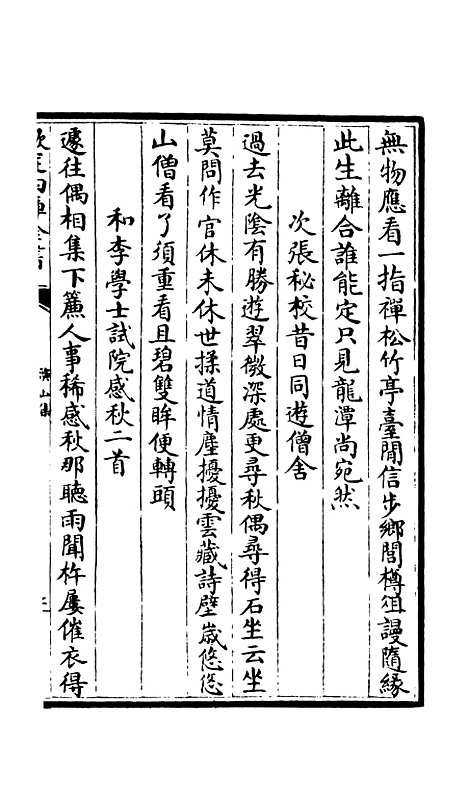 無物應看一指禪松竹亭臺閒信步鄉閭樽俎謾隨緣
此生離合誰能定只見龍潭尚宛然
次張秘校昔日同遊僧舍
過去光陰有勝遊翠微深處更尋秋偶尋得石坐云坐
莫問作官休未休世揉道情塵擾擾雲藏詩壁歲悠悠
山僧看了須重看且碧雙眸便轉頭
和李學士試院感秋二首
遽往偶相集下簾人事稀感秋那聽雨聞杵屢催衣得
欽定四庫全書
演山集